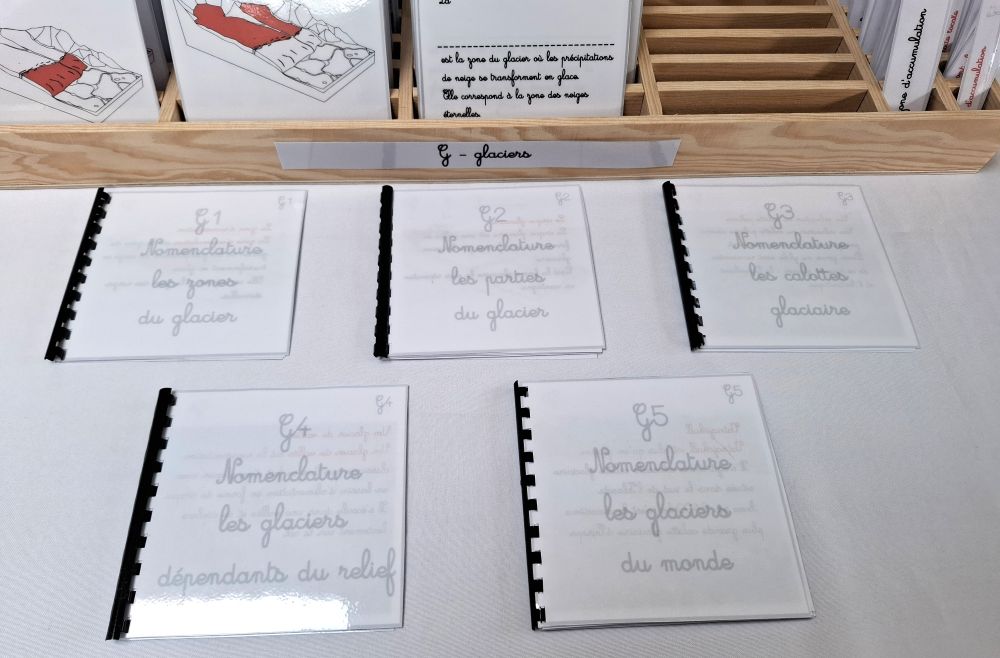 est la zone du glacier où les précipitations
de neige se transforment en glace.
Elle correspond à la zone des neiges
éternelles.
zone d'accumulation
d'accumulation
G - glaciers
G1
G1
Nomenclature
les zones
du glacier
G2
G2
Nomenclature
les parties
du glacier
G3
G3
Nomenclature
les calottes
glaciaire
G4
G4
Nomenclature
les glaciers
dépendants du relief
G5
G5
Nomenclature
les glaciers
du monde